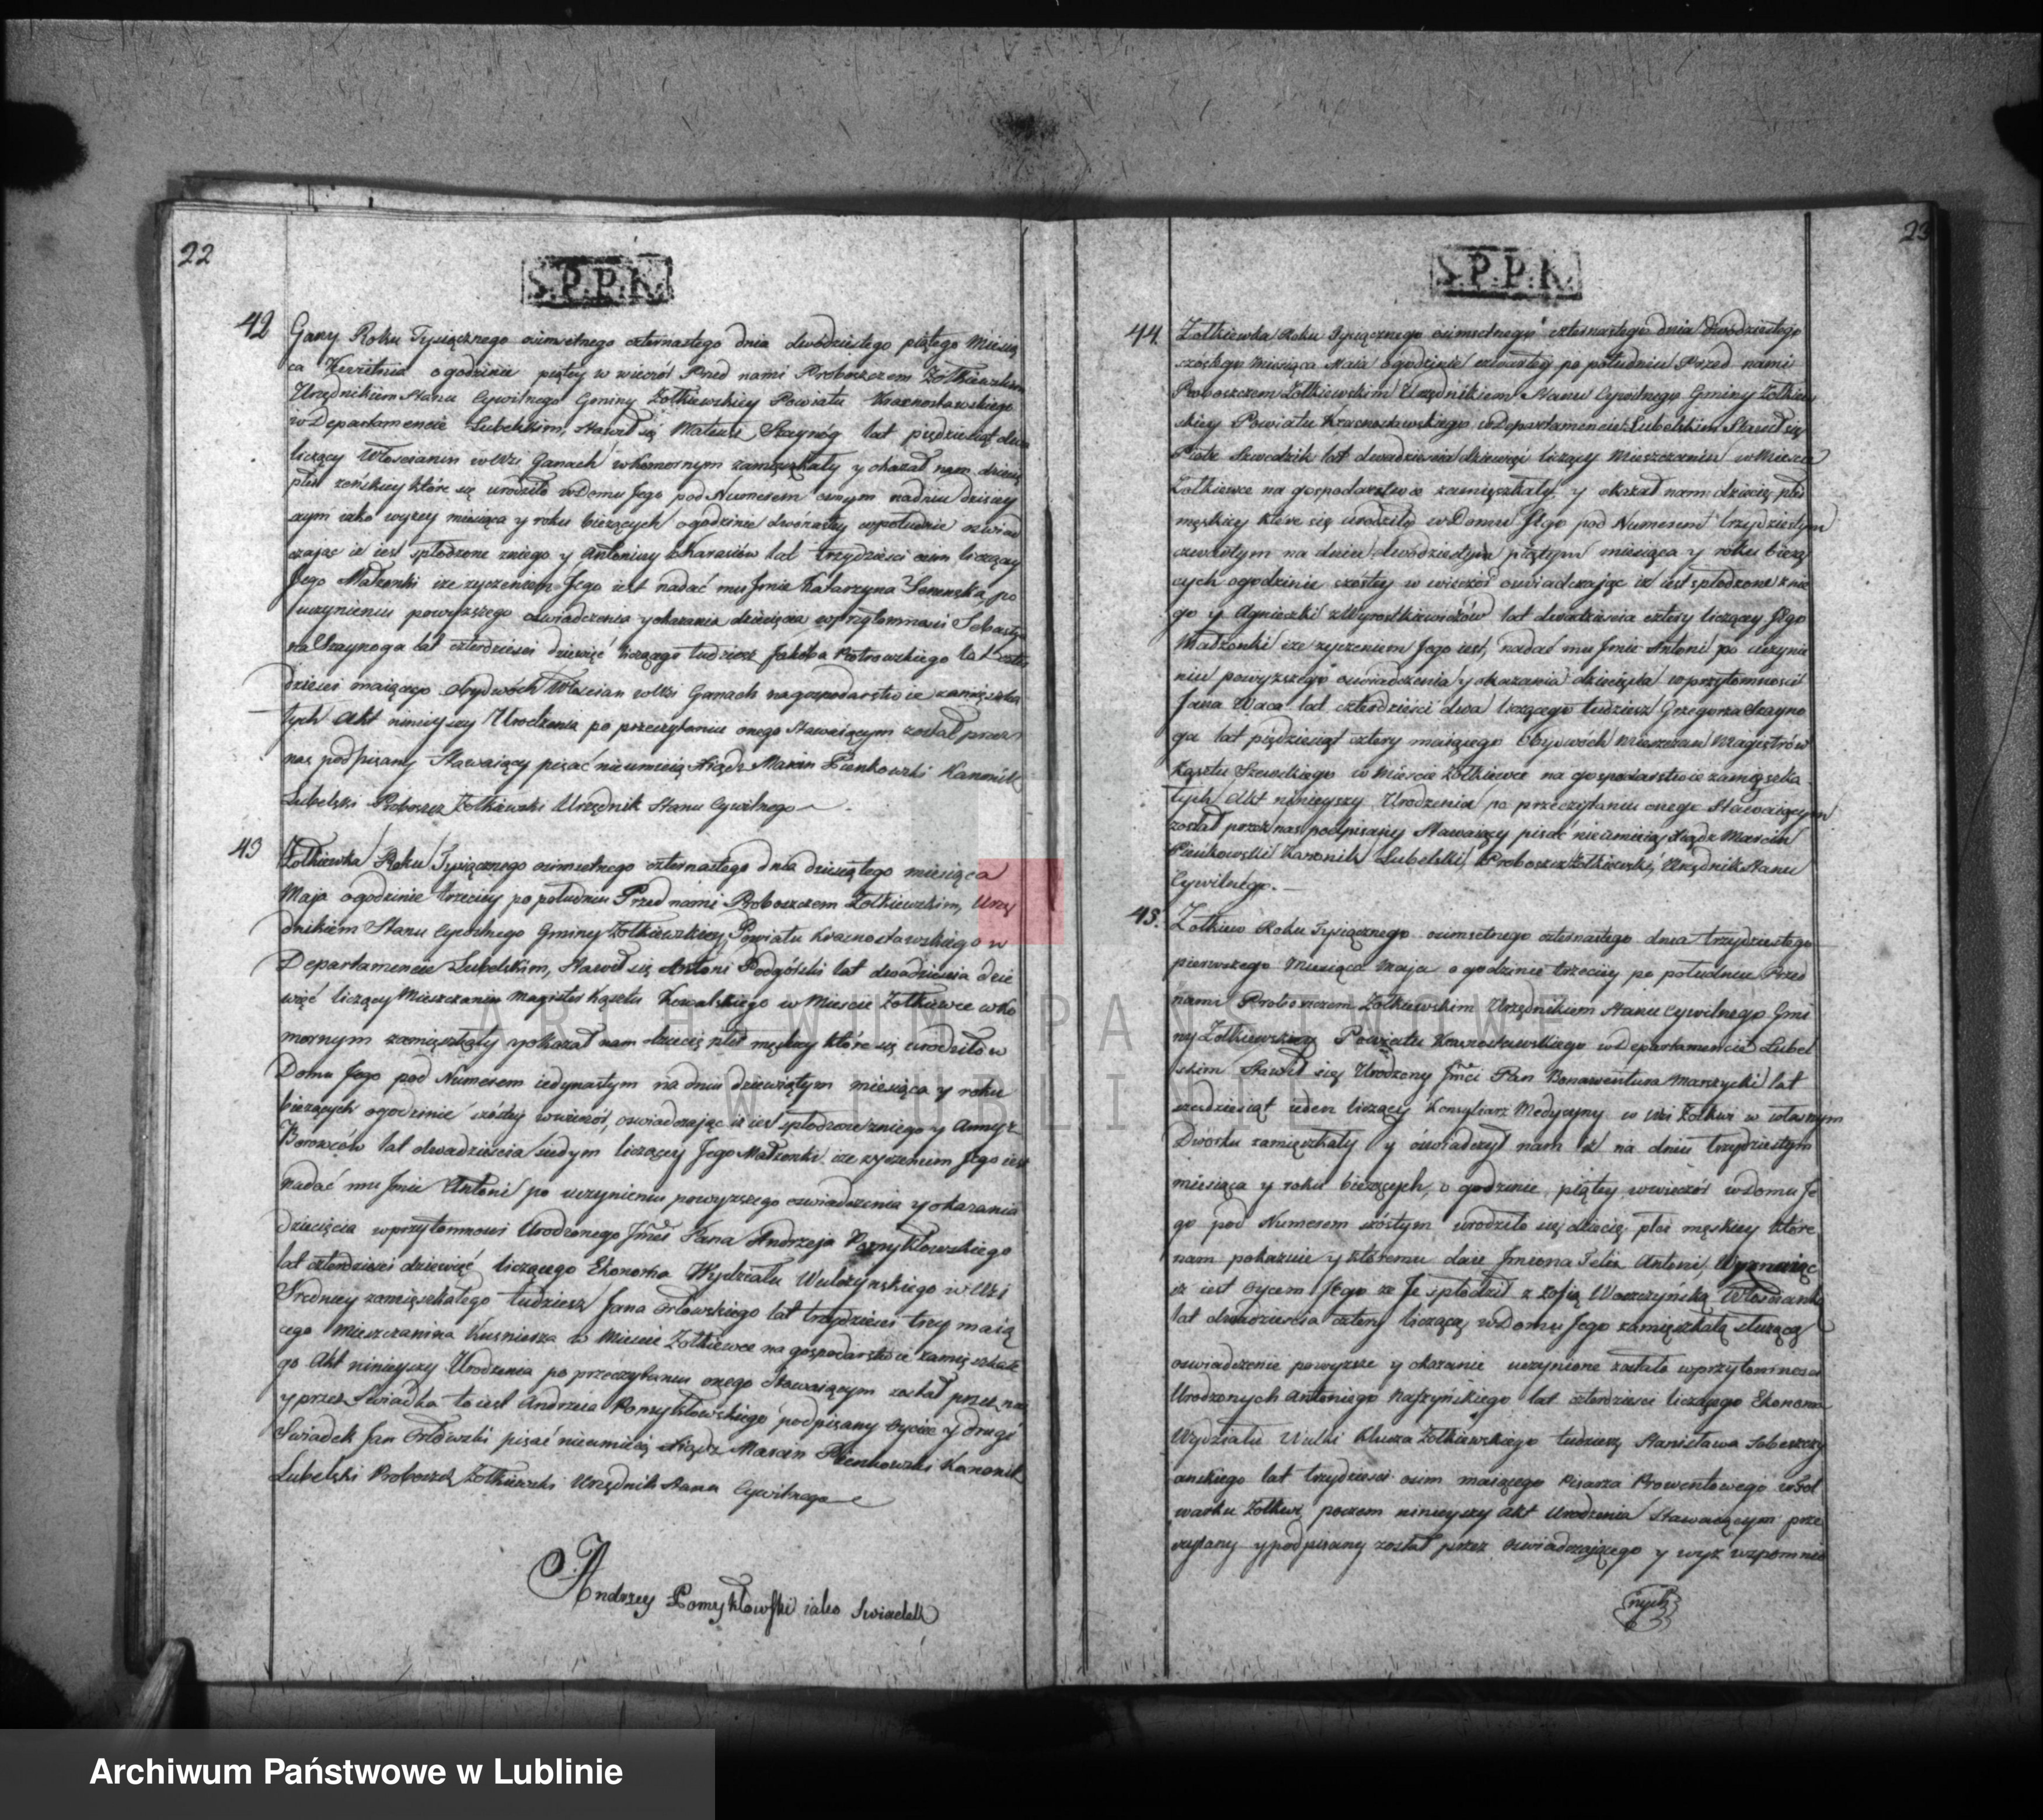 22
S.P.P.K.
42 Gany Roku Tysiącznego osimsetnego czternastego dnia dwódziestego piątego Miesią
ca Kwietnia o godzinie piątey w wieczór Przed nami Proboszczem Żółkiewskim
Urzędnikiem Stanu Cywilnego Gminy Żołkiewskiey Powiatu Krasnostawskiego
w Departamencie Lubelskim, stawił się Mateusz Szaynóg lat pięćdziesiąt dwa
liczący Włościanin w Wsi Ganach w komornym zamięszkały y okazał nam dziecię
płci żeńskiey które się urodziło w Domu Jego pod Numerem osmym na dniu dzisiey
szym jako wyżey miesiąca y roku bieżących o godzinie dwónastey w południe oswiad
czając iż iest spłodzone z niego y Antoniny Karasiów lat trzydzieści osim liczącey
Jego Małżonki i że życzeniem Jego iest nadać mu Jmie Katarzyna po
uczynieniu powyższego oświadczenia y okazania dziecięcia w przytomności Sebasty
na Szaynoga lat czterdzieści dziewięć liczącego tudzież Jakóba Piotrowskiego lat czter
dzieści maiącego obydwóch Włościan w Wsi Ganach na gospodarstwie zamięszka
łych Akt ninieyszy Urodzenia po przeczytaniu onego Stawaiącym został przez
nas podpisany Stawaiący pisać nieumieią Xiądz Marcin Pienkowski Kanonik
Lubelski Proboszcz Żołkiewski Urzędnik Stanu Cywilnego
43 Żołkiewka Roku Tysiącznego osimsetnego czternastego dnia dziesiątego miesiąca
Maja o godzinie trzeciey po południu Przed nami Proboszczem Żołkiewskim, Urzę
dnikiem Stanu Cywilnego Gminy Żołkiewskiey, Powiatu Krasnostawskiego w
Departamencie Lubelskim, Stawił się Antoni Podgórski lat dwadzieścia dzie
więć liczący Mieszczanin Magister Kąsztu Kowalskiego w Mieście Żołkiewce w Ko
mornym zamięszkały y okazał nam dziecię płci męskiey które się urodziło w
Domu Jego pod Numerem iedynastym na dniu dziewiątym miesiąca y roku
bieżących o godzinie szóstey w wieczór, oswiadczając iż iest spłodzone z niego y Anny z
lat dwadzieścia siedym liczącey Jego Małżonki i że życzeniem Jego iest
nadać mu Jmie Antoni po uczynieniu powyższego oswiadczenia y okazania
dziecięcia w przytomności Urodzonego Jmci Pana Andrzeja Pomykłowskiego
lat czterdzieści dziewięć liczącego Ekonoma Wydziału Wulczynskiego w Wsi
Sredniey zamięszkałego tudzież Jana Orłowskiego lat trzydzieści trzy maią
cego Mieszczanina Kusnierza w Mieście Żołkiewce na gospodarstwie zamięszkałe
go Akt ninieyszy Urodzenia po przeczytaniu onego Stawaiącym został przez nas
y przez Swiadka to iest Andrzeia Pomykłowskiego podpisany Oyciec y drugi
Swiadek Jan Orłowski pisać nieumieią Xiądz Marcin Pienkowski Kanonik
Lubelski Proboszcz Żołkiewski Urzędnik Stanu Cywilnego
Andrzey Pomykłowski iako Swiadek
23
S.P.P.K.
44. Żołkiewka Roku Tysiącznego osimsetnego czternastego dnia dwódziestego
szóstego Miesiąca Maia o godzinie czwartey po południu Przed nami
Proboszczem Żołkiewskim Urzędnikiem Stanu Cywilnego Gminy Żołkiew
skiey Powiatu Krasnostawskiego w Departamencie Lubelskim Stawił się
Piotr Szwedzik lat dwadzieścia dziewięć liczący Mieszczanin w Mieście
Żołkiewce na gospodarstwie zamięszkały y okazał nam dziecię płci
męskiey które się urodziło w Domu Jego pod Numerem trzydziestym
czwartym na dniu dwódziestym piątym miesiąca y roku bieżą
cych o godzinie szóstey w wieczór oswiadczając iż iest spłodzone z nie
go y Agnieszki z Wyrostkiewiczów lat dwadzieścia cztery liczącey Jego
Małżonki i że życzeniem Jego iest, nadać mu Jmie Antoni po uczynie
niu powyższego oswiadczenia y okazania dziecięcia w przytomności
Jana Waca lat czterdzieści dwa liczącego tudzież Grzegorza Szayno
ga lat pięćdziesiąt cztery maiącego Obydwóch Mieszczan Magistrów
Kąsztu Szewckiego w Mieście Żołkiewce na gospodarstwie zamięszka
łych Akt ninieyszy Urodzenia po przeczytaniu onego Stawaiącym
został przez nas podpisany Stawaiący pisać nieumieią Xiądz Marcin
Pieńkowski Kanonik Lubelski, Proboszcz Żołkiewski, Urzędnik Stanu
Cywilnego.
45. Żołkiew Roku Tysiącznego osimsetnego czternastego dnia trzydziestego
pierwszego Miesiąca Maja o godzinie trzeciey po południu Przed
nami Proboszczem Żołkiewskim Urzędnikiem Stanu Cywilnego Gmi
ny Żołkiewskiey Powiatu Krasnostawskiego w Departamencie Lubel
skim Stawił się Urodzony Jmci Pan Bonawentura Marszycki lat
sześdziesiąt ieden liczący Konsyliarz Medycyny w Wsi Żołkwi w własnym
Dworku zamięszkały y óświadczył nam iż na dniu trzydziestym
miesiąca y roku bieżących, o godzinie piątey w wieczór w Domu Je
go pod Numerem szóstym urodziło się dziecię płci męskiey które
nam pokazuie y któremu daie Jmiona Felix Antoni, Wyznaiąc
iż iest Oycem Jego że Je spłodził z Zofią Waszczyńską Włościanką
lat dwadzieścia cztery liczącą w Domu Jego zamięszkałą służącą
oswiadczenie powyższe y okazanie uczynione zostało w przytomności
Urodzonych Antoniego lat czterdzieści liczącego Ekonoma
Wydziału Wulki Klucza Żołkiewskiego tudzież Stanisława Sobeszczy
anskiego lat trzydzieści osim maiącego Pisarza Prowentowego w Fol
warku Żołkwi, poczem ninieyszy Akt Urodzenia Stawaiącym prze
czytany y podpisany został przez Oswiadczaiącego y wyż wzpomnio
nych
ARCHIWUM PAŃSTWOWE
W LUBLINIE
Archiwum Państwowe w Lublinie